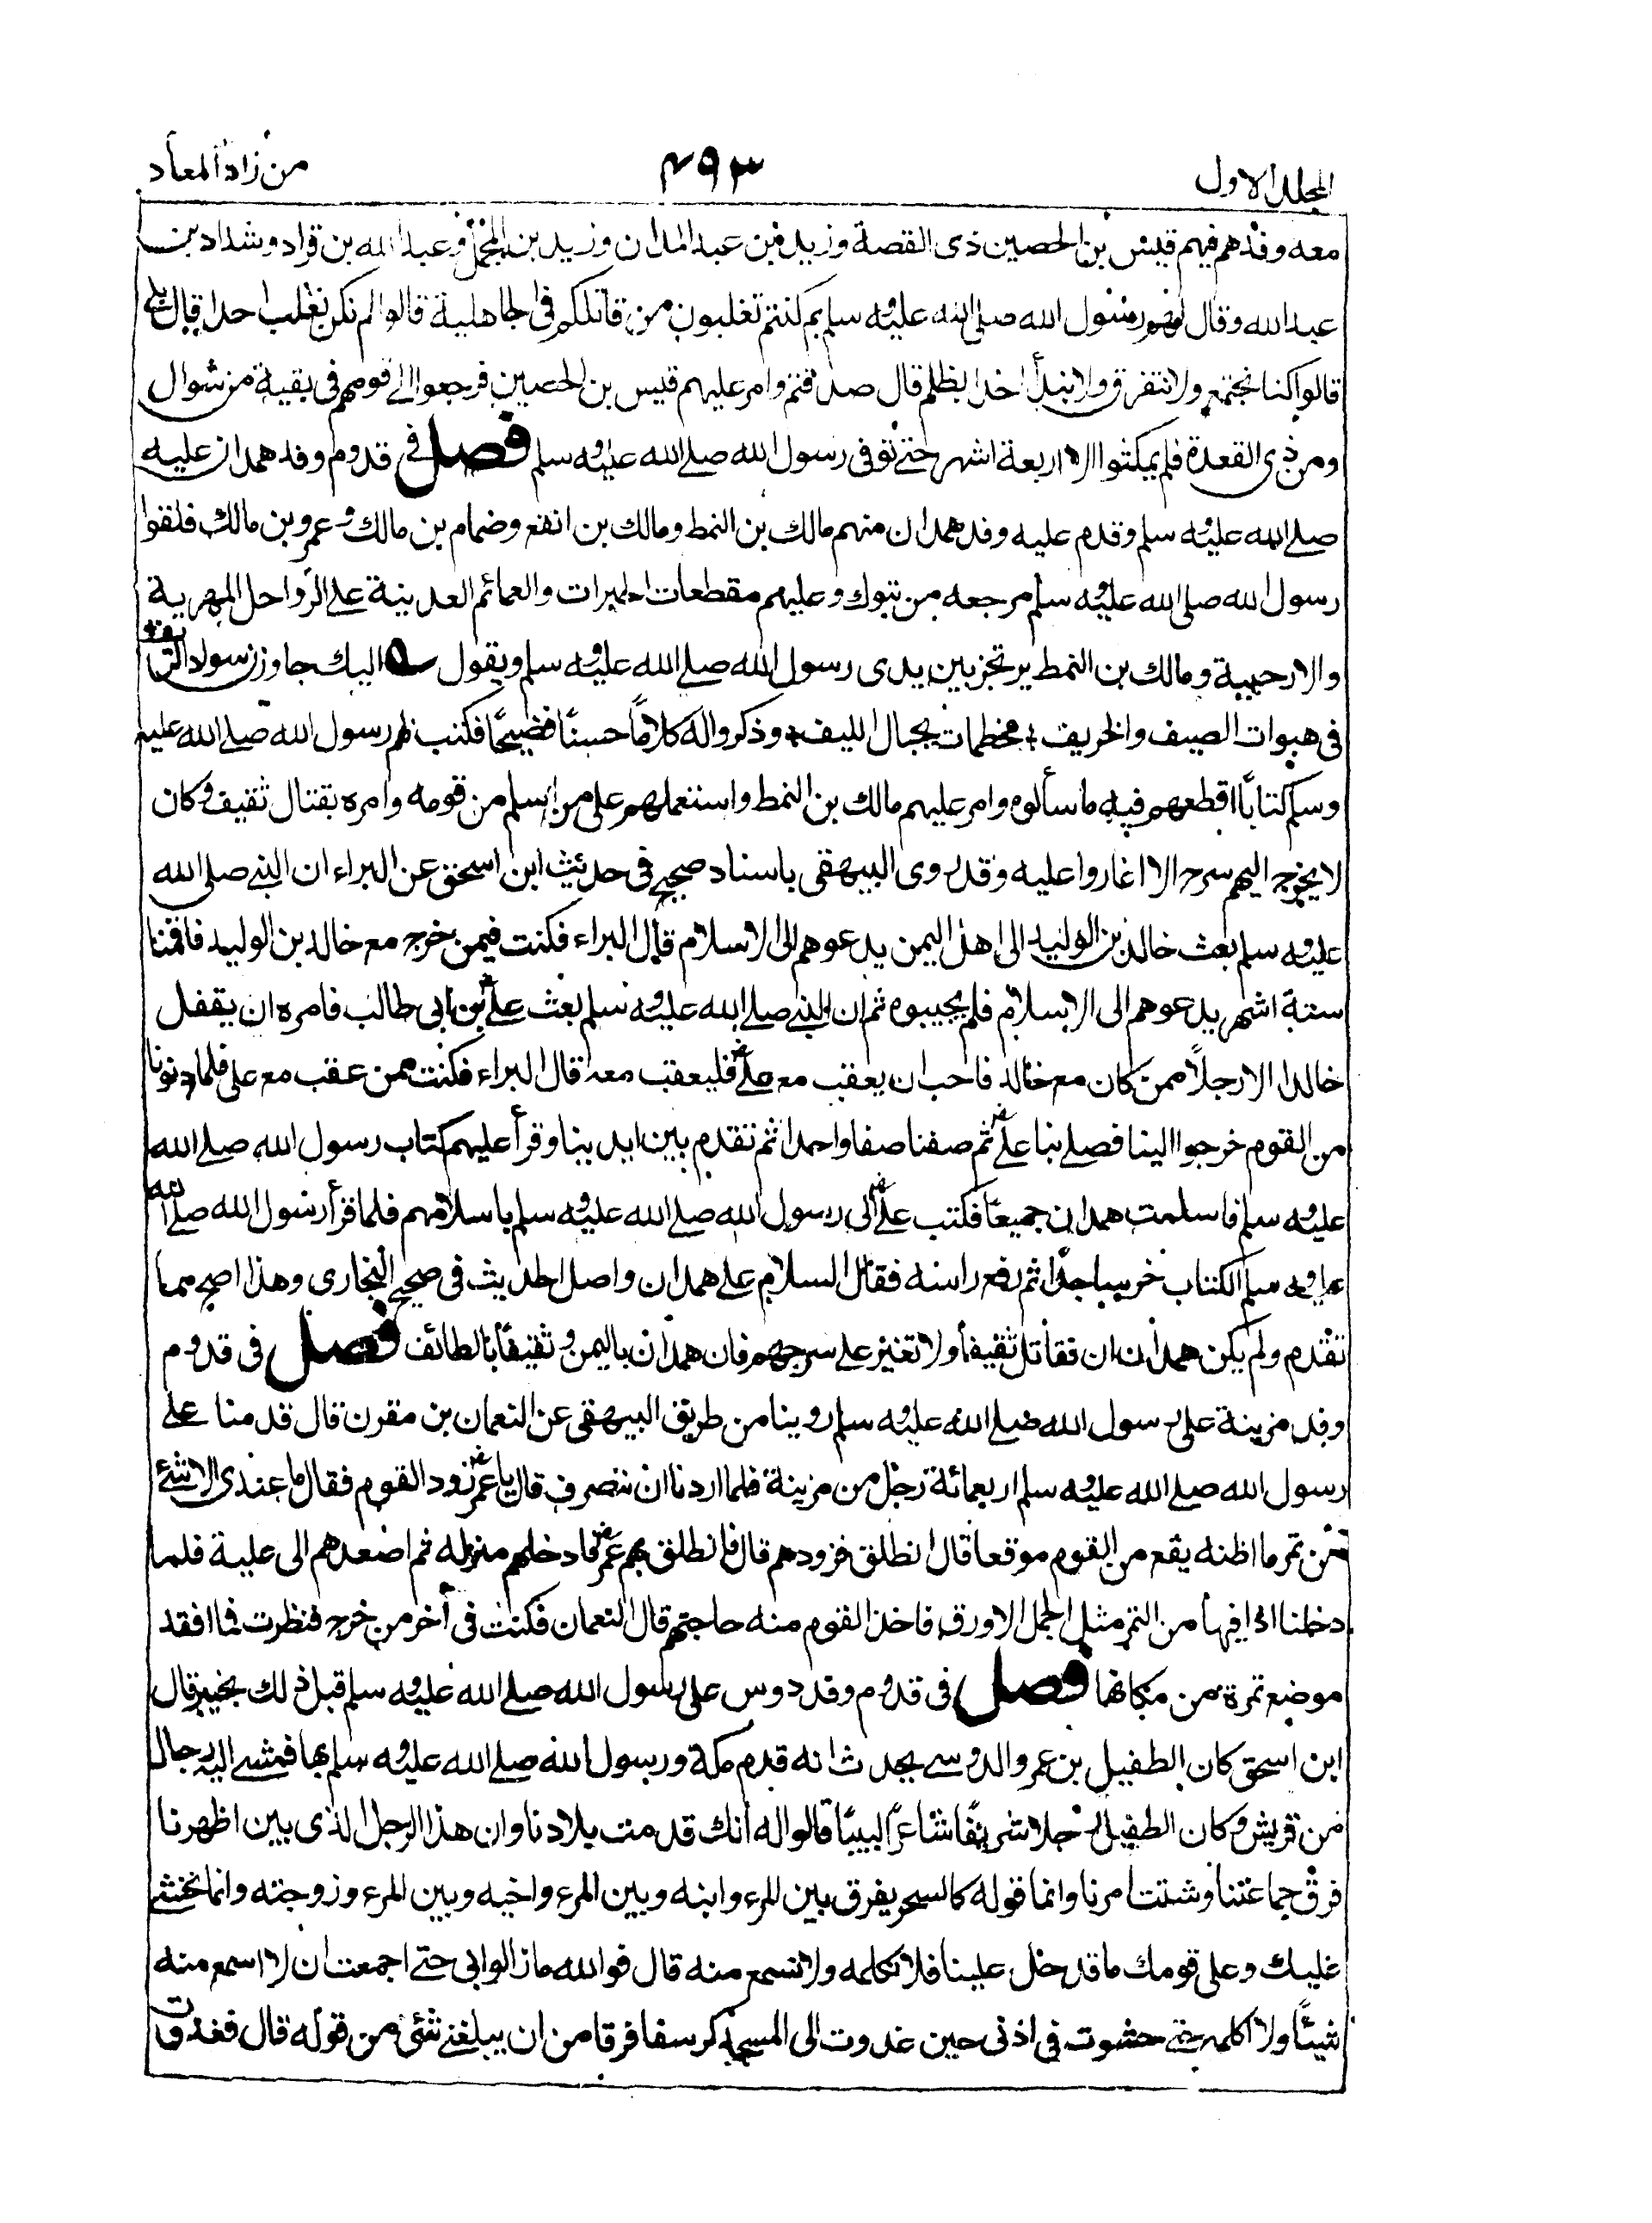 المجلد الاول ۴۹۳ من زاد المعاد
معه وفدهم فيهم قيس بن الحصين ذى القصة ويزيد بن عبد المدان ويزيد بن المحجل وعبد الله بن قراد وشداد بن
عبد الله وقال لهم رسول الله صلى الله عليه وسلم بم كنتم تغلبون من قاتلكم فى الجاهلية قالوا لم نكن نغلب احدا قال بلى
قالوا كنا نجتمع ولا نتفرق ولا نبدأ احدا بظلم قال صدقتم وامر عليهم قيس بن الحصين فرجعوا الى قومهم فى بقية من شوال
ومن ذى القعدة فلم يمكثوا الا اربعة اشهر حتى توفى رسول الله صلى الله عليه وسلم فصل فى قدوم وفد همدان عليه
صلى الله عليه وسلم وقدم عليه وفد همدان منهم مالك بن النمط ومالك بن انفع وضمام بن مالك وعمرو بن مالك فلقوا
رسول الله صلى الله عليه وسلم مرجعه من تبوك وعليهم مقطعات الحبرات والعمائم العدنية على الرواحل المهرية
والارحبية ومالك بن النمط يرتجز بين يدى رسول الله صلى الله عليه وسلم ويقول ۵ اليك جاوزن سواد الريف
فى هبوات الصيف والخريف ؛ مخطمات بحبال الليف ؛ وذكروا له كلاماً حسناً فصيحًا فكتب لهم رسول الله صلى الله عليه
وسلم كتاباً اقطعهم فيه ما سألوه وامر عليهم مالك بن النمط واستعملهم على من اسلم من قومه وامره بقتال ثقيف وكان
لا يخرج اليهم سرح الا اغاروا عليه وقد روى البيهقى باسناد صحيح فى حديث ابن اسحق عن البراء ان النبى صلى الله
عليه وسلم بعث خالد بن الوليد الى اهل اليمن يدعوهم الى الاسلام قال البراء فكنت فيمن خرج مع خالد بن الوليد فاقمنا
ستة اشهر يدعوهم الى الاسلام فلم يجيبوه ثم ان النبى صلى الله عليه وسلم بعث على بن ابى طالب فامره ان يقفل
خالدا الا رجلاً ممن كان مع خالد فاحب ان يعقب مع على فليعقب معه قال البراء فكنت ممن عقب مع على فلما دنونا
من القوم خرجوا الينا فصلى بنا على ثم صفنا صفا واحدا ثم تقدم بين ايدينا وقرأ عليهم كتاب رسول الله صلى الله
عليه وسلم فاسلمت همدان جميعًا فكتب على الى رسول الله صلى الله عليه وسلم باسلامهم فلما قرأ رسول الله صلى الله
عليه وسلم الكتاب خر ساجدًا ثم رفع راسه فقال السلام على همدان واصل الحديث فى صحيح البخارى وهذا اصح مما
تقدم ولم يكن همدان ان تقاتل ثقيفا ولا تغير على سرحهم فان همدان باليمن وثقيفًا بالطائف فصل فى قدوم
وفد مزينة على رسول الله صلى الله عليه وسلم روينا من طريق البيهقى عن النعمان بن مقرن قال قدمنا على
رسول الله صلى الله عليه وسلم اربعمائة رجل من مزينة فلما اردنا ان ننصرف قال يا عمر زود القوم فقال ما عندى الا شئ
من تمر ما اظنه يقع من القوم موقعا قال انطلق فزودهم قال فانطلق بهم عمر فادخلهم منزله ثم اصعدهم الى علية فلما
دخلنا اذا فيها من التمر مثل الجمل الاورق فاخذ القوم منه حاجتهم قال النعمان فكنت فى آخر من خرج فنظرت فما افقد
موضع تمرة من مكانها فصل فى قدوم وفد دوس على رسول الله صلى الله عليه وسلم قبل ذلك بخيبر قال
ابن اسحق كان الطفيل بن عمرو الدوسى يحدث انه قدم مكة ورسول الله صلى الله عليه وسلم بها فمشى اليه رجال
من قريش وكان الطفيل رجلا شريفًا شاعرًا لبيبًا قالوا له انك قدمت بلادنا وان هذا الرجل الذى بين اظهرنا
فرق جماعتنا وشتت امرنا وانما قوله كالسحر يفرق بين المرء وابنه وبين المرء واخيه وبين المرء وزوجته وانما نخشى
عليك وعلى قومك ما قد دخل علينا فلا تكلمه ولا تسمع منه قال فوالله ما زالوا بى حتى اجمعت ان لا اسمع منه
شيئًا ولا اكلمه حتى حشوت فى اذنى حين غدوت الى المسجد كرسفا فرقا من ان يبلغنى شئ من قوله قال فغدوت